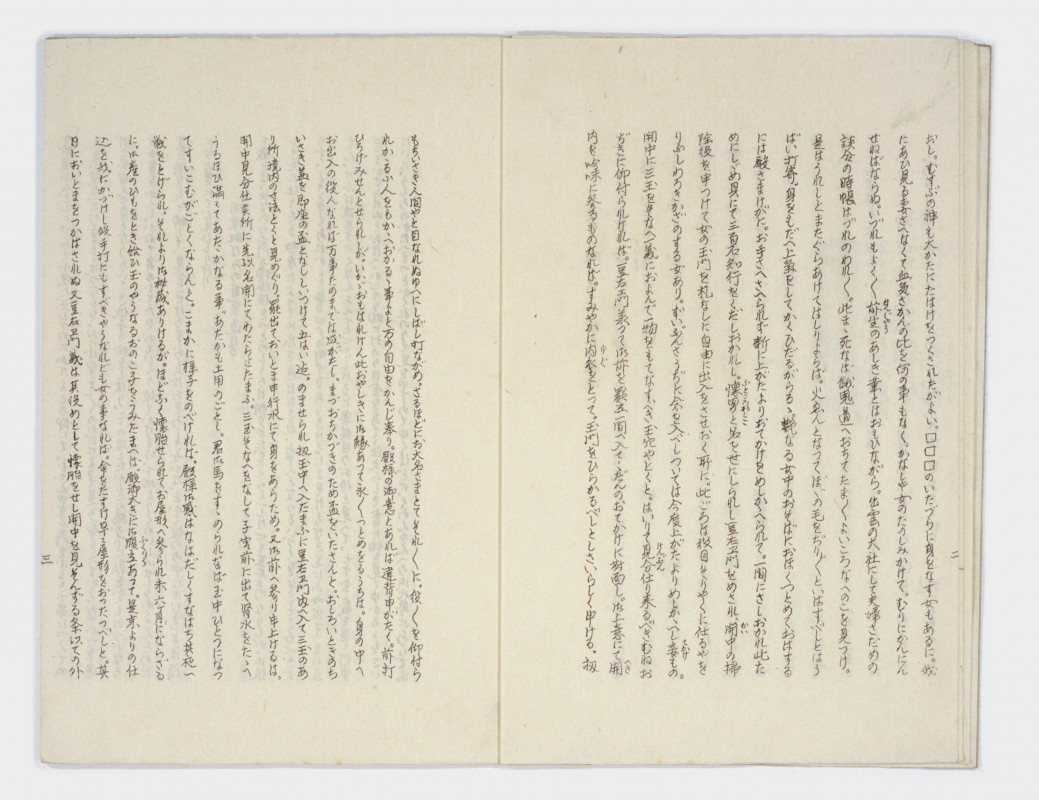 おし。むすぶの神も大かたにたはけをつくされたがよい。口口口のいたづらに身をなす女もあるに。故
にあひ見る妻さへなくて血気さかんの比を何の事もなく。かなしや女のたうしみかけて。むりにかんにん
せねばならぬ。いづれもよく〱前生のあしき業とはおもひながら。出雲の大社にして夫婦さだめの
談合の時帳はづれのめれ〱。此まゝ死なは餓鬼道へおちてたま〱よいところなへのことを見つけ。
是はうれしとまたぐらあけてはしりよらば。火ゑんとなつてぼゝの毛をぢり〱といはすべしとはう
ばい打寄。身をもだへ上気をしてかくひだるがらるゝ。軽なる女中のおそばにおほくつとめておはする
には殿さまげがた。お手さへさへられず新に上がたよりおてかけをめしかゝへられて。一間にさしおかれ此た
めにしのめ身にて三百石知行をくだしおかれし。懐男と名をせにしられし豆右衛門をめされ。開中の掃
除後を申つけて女の玉門を札なしに自由に出入をさせおく所に。此ごろは役目そりやくに仕るやを
りふしわろきかざのする女あり。ずいぶんさうぢに念を入べしついては今度上がたよりめしかゝへし妾もの。
開中に三玉をそなへ一義におよんで一物をもてなすべき玉宅やとくと。はいりて見分仕り来るべきむねお
ぢきに仰付られければ。豆右衛門承つて御前を罷立一間へ入てくだんのおてかけに対面し。御上意にて開
内を吟味に参るものなれば。すみやかに内衣をとつて。玉門をひらかるべしとしさいらしく申ける。扨
二
もちいさき人間やと目なれぬゆへにしばし打ながめ。さるほどにお大名さまとてそれ〱に。役〱を仰付ら
れかゝる小人をもかゝへおかるゝ事よと万の自由をかんじ奉り。殿様の御意とあれば違背申がたく。前打
ひろげみせんとせられしが。いかゞおもはれけん此おやしきに御縁あつて永〱つとめをるうちは。身の中へ
お出入の役人なれば万事たのまでは成がたし。まづおちかづきのため盃をいたさんと。おしろいときのち
いさき盃を即座の盃となししいつけて五はい迄。のませられ扨玉中へ入たまふに豆右衛門内へ入て三玉のあ
り所境内の寸法とくと見めぐり。罷出ておいとま申行水にて身をあらため。又御前へ参り申上げるは。
開中見分仕る所に先以名開にてわたらせたまふ。三玉そなへをなして子宮前に出て腎水をたゝへ
うるほひ満々てあたゝかなる事。あたかも土用のごとし。君御馬をすゝめられなば玉中ひとつになつ
てすいこむがごとくならんと。こまかに様子をのべければ。殿様御感はなはだしくすなはち其夜一
戦をとげられ。それより御秘蔵ありけるが。ほどふく懐胎せられてお屋形へ参られ未六ケ月にならざる
に。御産のひもをとき給ひ玉のやうなるおのこ子をうみたまへば。殿御大きに御腹立あつて。是京よりの仕
込を我にかづけし段手打にもすべきやうなれども女の事なれば。命をたすけ早々屋形をおつたつべしと。其
日においとまをつかはされぬ又豆右衛門義は其役めとして懐胎をせし開中を見そんずる条以ての外
三